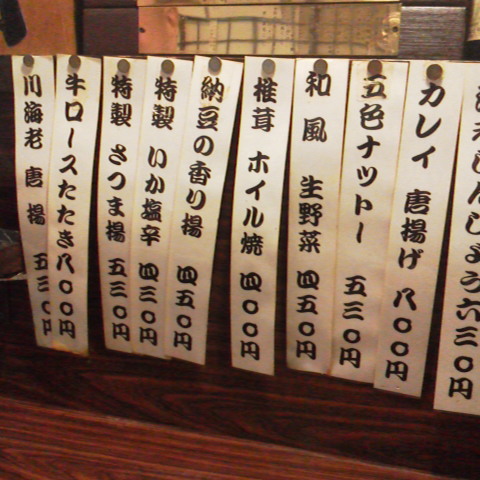 えびしんじょう六三〇円
カレイ 唐揚げ 八〇〇円
五色ナットー 五三〇円
和風 生野菜 四五〇円
椎茸 ホイル焼 四〇〇円
納豆の香り揚 四五〇円
特製 いか塩辛 四三〇円
特製 さつま揚 五三〇円
牛ロースたたき八〇〇円
川海老 唐揚 五三〇円